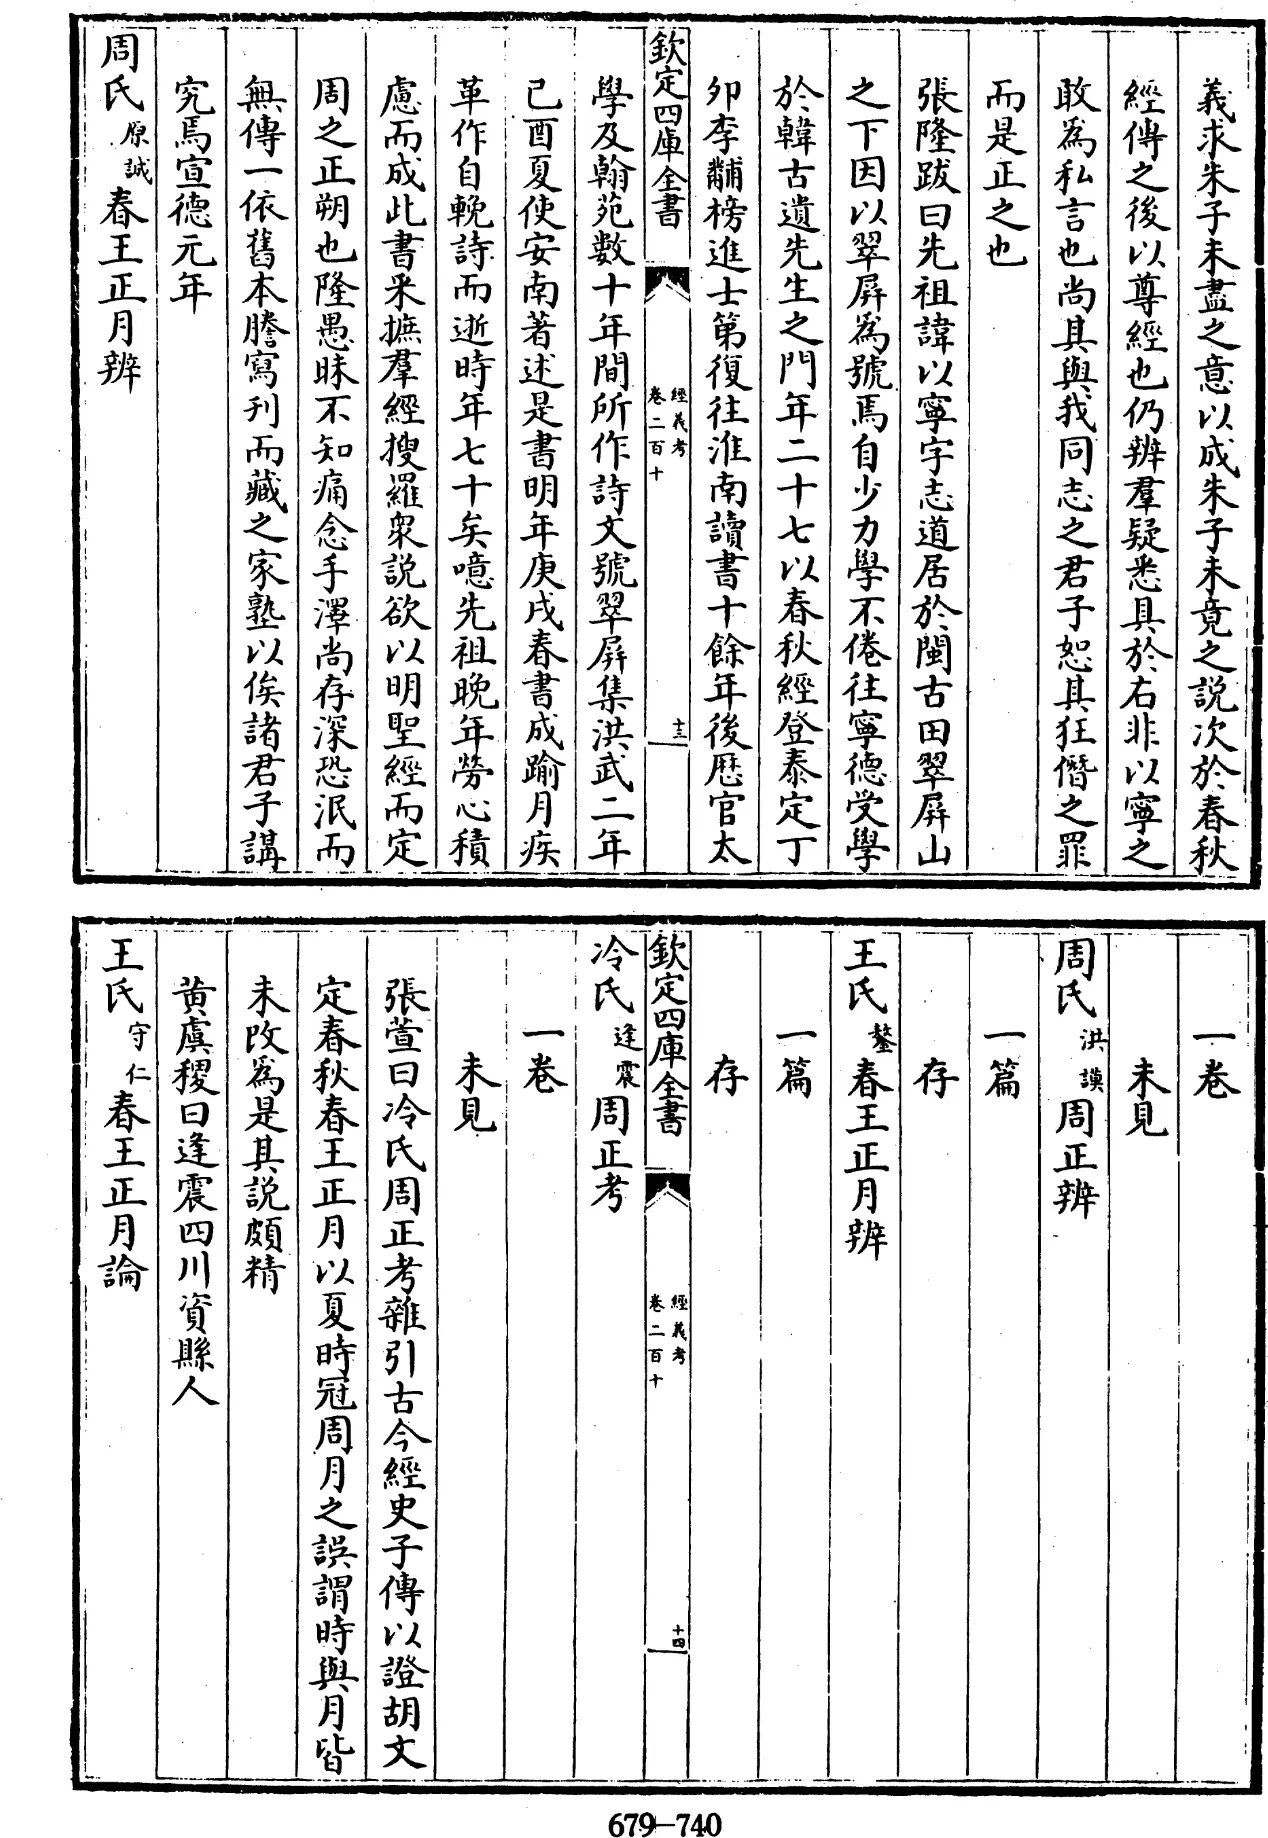 義求朱子未盡之意以成朱子未竟之説次於春秋
經傳之後以尊經也仍辨羣疑悉具於右非以寧之
敢為私言也尚其與我同志之君子恕其狂僭之罪
而是正之也
張隆跋曰先祖諱以寧字志道居於閩古田翠屏山
之下因以翠屏為號焉自少力學不倦往寧德受學
於韓古遺先生之門年二十七以春秋經登泰定丁
卯李黼榜進士第復往淮南讀書十餘年後歷官太
欽定四庫全書
經義考
卷二百十
十三
學及翰苑數十年間所作詩文號翠屏集洪武二年
己酉夏使安南著述是書明年庚戌春書成踰月疾
革作自輓詩而逝時年七十矣噫先祖晚年勞心積
慮而成此書采摭羣經搜羅衆説欲以明聖經而定
周之正朔也隆愚昧不知痛念手澤尚存深恐泯而
無傳一依舊本謄寫刋而藏之家塾以俟諸君子講
究焉宣德元年
周氏原誠春王正月辨
一卷
未見
周氏洪謨周正辨
一篇
存
王氏鏊春王正月辨
一篇
存
欽定四庫全書
經義考
卷二百十
十四
冷氏逢震周正考
一卷
未見
張萱曰冷氏周正考雜引古今經史子傳以證胡文
定春秋春王正月以夏時冠周月之誤謂時與月皆
未改為是其説頗精
黄虞稷曰逢震四川資縣人
王氏守仁春王正月論
679-740